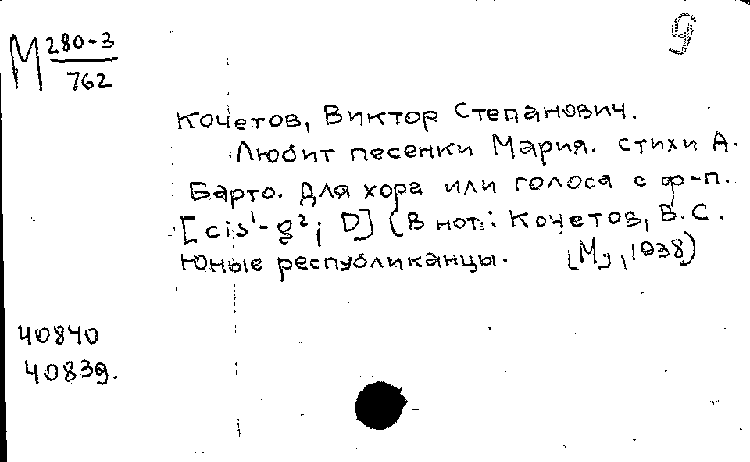 М 280-3
762
9
Кочетов, Виктор Степанович.
Любит песенки Мария. стихи А.
Барто. Для хора или голоса с ф-п.
[cis¹-g²; D] (В нот.: Кочетов, В.С.
Юные республиканцы. [М., 1938)
40840
40839.